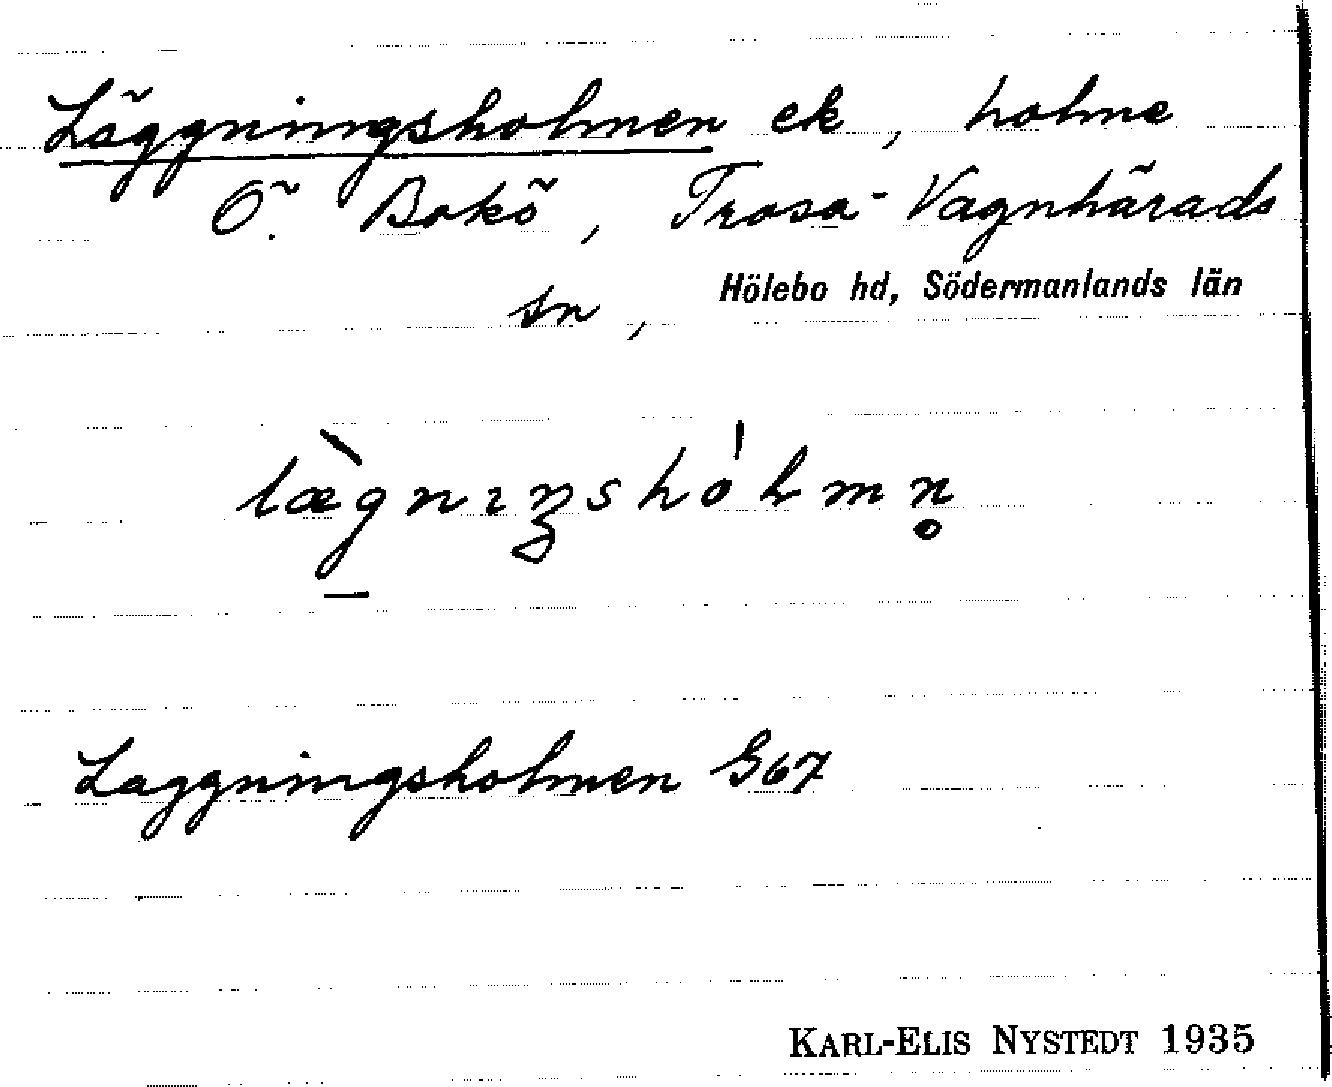 Läggningsholmen ek, holme
Ö. Bokö, Trosa-Vagnhärads
sn, Hölebo hd, Södermanlands län
læ̀gnıŋshólmn̥
Laggningsholmen G67
KARL-ELIS NYSTEDT 1935